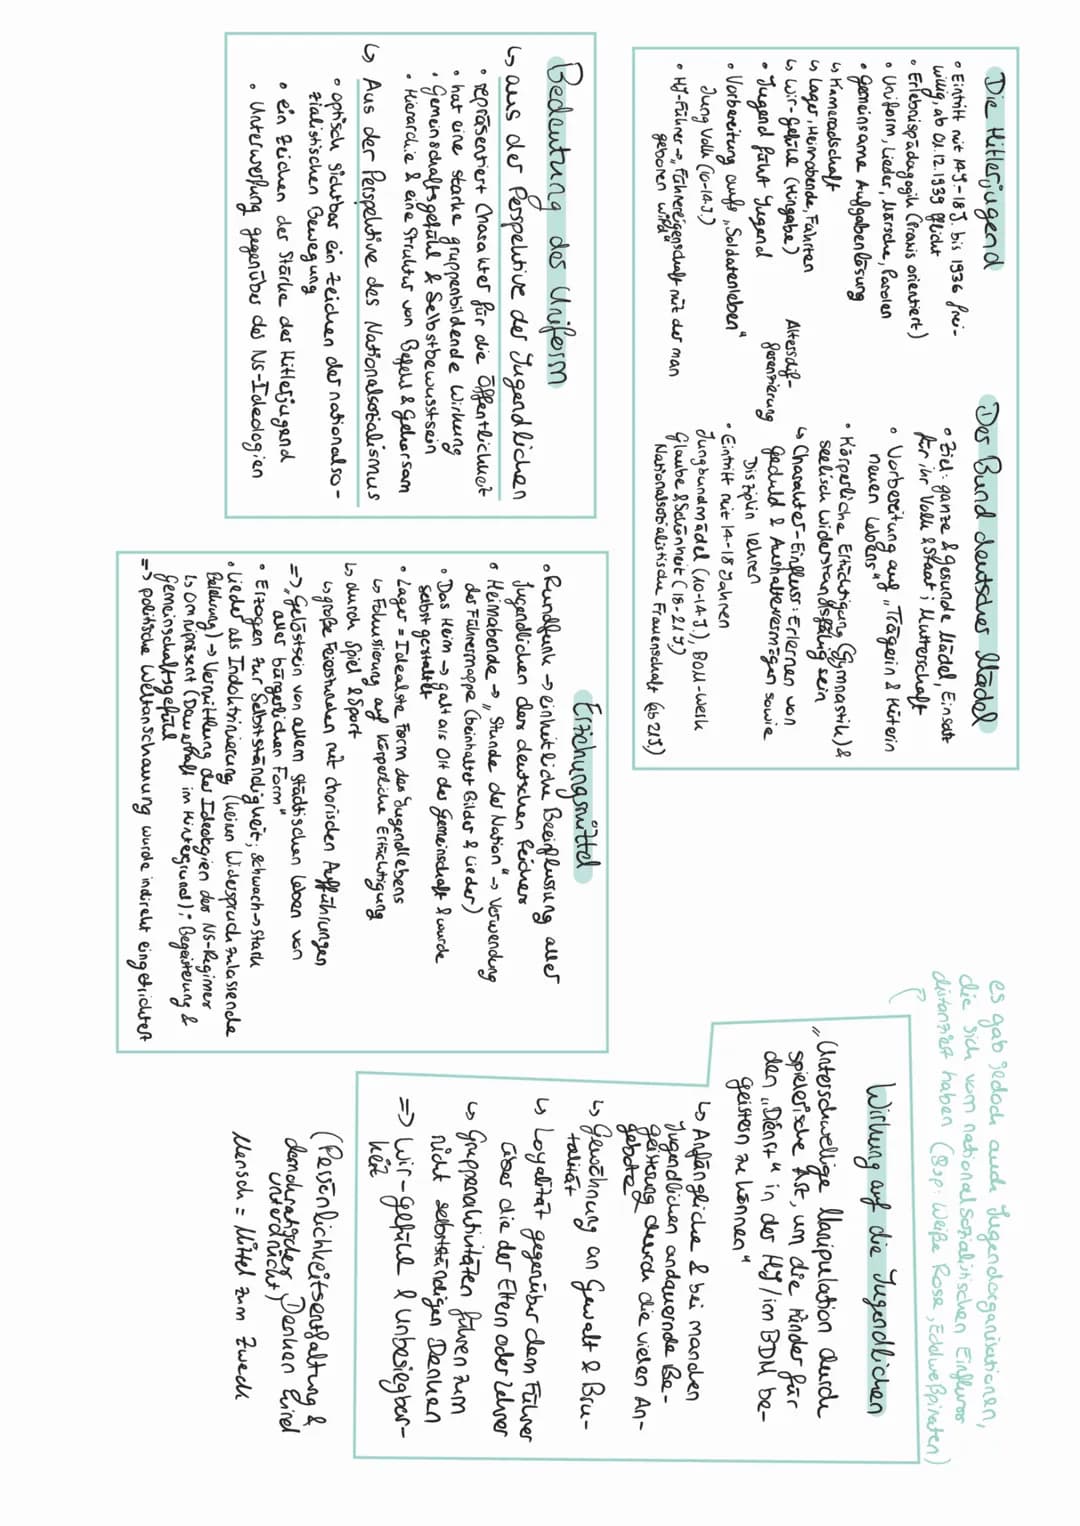 Die Hitlerjugend
• Eintritt mit 14J-18J. bis 1936 frei-
willig, ab 01.12.1939 Pflicht
• Erlebnispädagogik (Praxis orientiert)
• Uniform, Lieder, Märsche, Parolen
• gemeinsame Aufgabenlösung
↳ Kameradschaft
↳ Lager, Heimabende, Fahrten
↳ Wir-Gefühl (Hingabe)
• Jugend führt Jugend
• Vorbereitung aufs „Soldatenleben"
Jung Volk (10-14J.)
• HJ-Führer → „Führereigenschaft mit der man
geboren wird"
Altersdif-
ferenzierung
Der Bund deutscher Mädel
• Ziel: ganze & gesunde Mädel, Einsatz
für ihr Volk & Staat; Mutterschaft
• Vorbereitung auf „Trägerin & Hüterin
neuen Lebens"
• Körperliche Ertüchtigung (Gymnastik) &
seelisch widerstandsfähig sein
↳ Charakter-Einfluss: Erlernen von
Geduld & Aushaltevermögen sowie
Disziplin lehren
• Eintritt mit 14-18 Jahren
Jungbundmädel (10-14J), BDM-Werk
Glaube & Schönheit (18-21J)
Nationalsozialistische Frauenschaft (ab 21J)
Bedeutung der Uniform
↳ aus der Perspektive der Jugendlichen
• repräsentiert Charakter für die Öffentlichkeit
• hat eine starke gruppenbildende Wirkung
• Gemeinschaftsgefühl & Selbstbewusstsein
• Hierarchie & eine Struktur von Befehl & Gehorsam
↳ Aus der Perspektive des Nationalsozialismus
• optisch sichtbar ein Zeichen der nationalso-
zialistischen Bewegung
• ein Zeichen der Stärke der Hitlerjugend
• Unterwerfung gegenüber der NS-Ideologien
Erziehungsmittel
• Rundfunk → einheitliche Beeinflussung aller
Jugendlichen des deutschen Reiches
• Heimabende → „Stunde der Nation" → Verwendung
der Führermappe (beinhaltet Bilder & Lieder)
• Das Heim → galt als Ort der Gemeinschaft & wurde
selbst gestaltet
• Lager = Idealste Form des Jugendlebens
↳ Fokussierung auf körperliche Ertüchtigung
↳ durch Spiel & Sport
↳ große Feierstunden mit chorischen Aufführungen
=> „Gelöstsein von allem städtischen Leben von
aller bürgerlichen Form"
• Erzogen zur Selbstständigkeit; schwach → stark
• Lieder als Indoktrinierung (keinen Widerspruch zulassende
Bildung) → Vermittlung der Ideologien des NS-Regimes
↳ Omnipräsent (Dauerhaft im Hintergrund); Begeisterung &
Gemeinschaftsgefühl
=> politische Weltanschauung wurde indirekt eingetrichtert
es gab jedoch auch Jugendorganisationen,
die sich vom nationalsozialistischen Einfluss
distanziert haben (Bsp: Weiße Rose, Edelweißpiraten)
Wirkung auf die Jugendlichen
„Unterschwellige Manipulation durch
spielerische Art, um die Kinder für
den „Dienst" in der HJ/im BDM be-
geistern zu können"
↳ Anfängliche & bei manchen
Jugendlichen andauernde Be-
geisterung durch die vielen An-
gebote
↳ Gewöhnung an Gewalt & Bru-
talität
↳ Loyalität gegenüber dem Führer
über die der Eltern oder Lehrer
↳ Gruppenaktivitäten führen zum
nicht selbstständigen Denken
=> Wir-Gefühl & Unbesiegbar-
keit
(Persönlichkeitsentfaltung &
demokratisches Denken wird
unterdrückt)
Mensch = Mittel zum Zweck